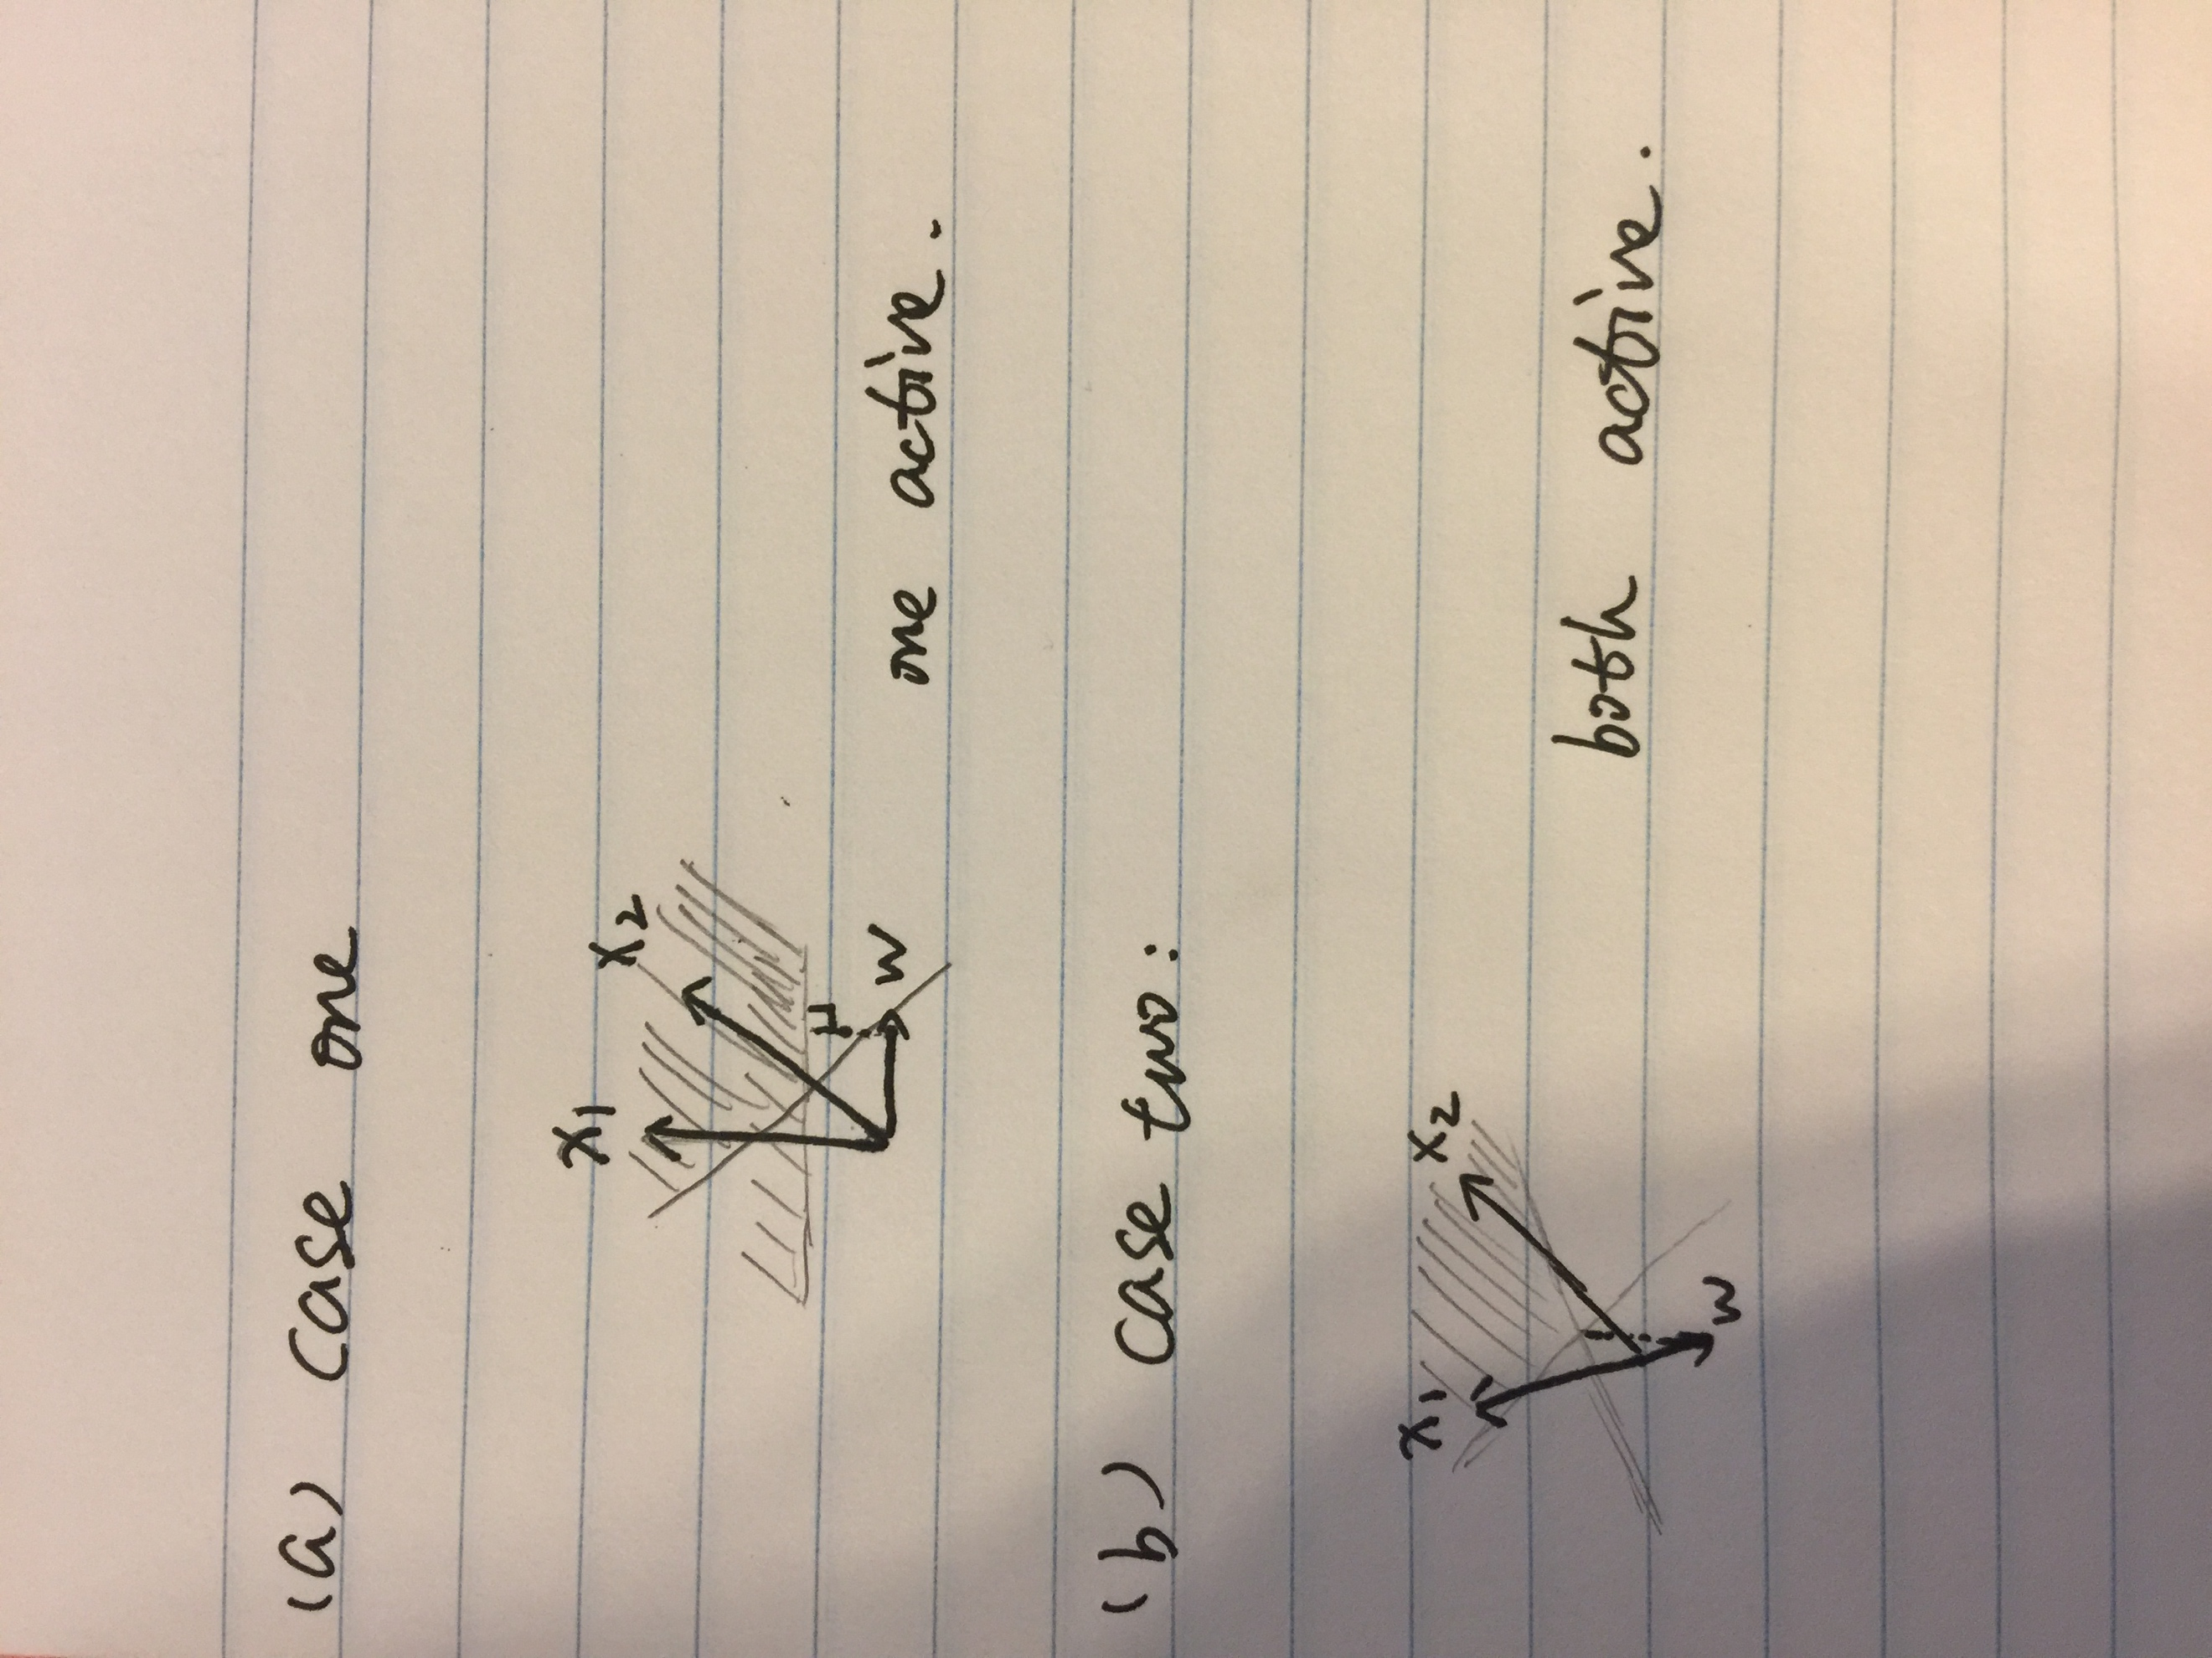 (a) Case one
x1
x2
μ
w
one active.
(b) Case two:
x1
x2
w
both active.